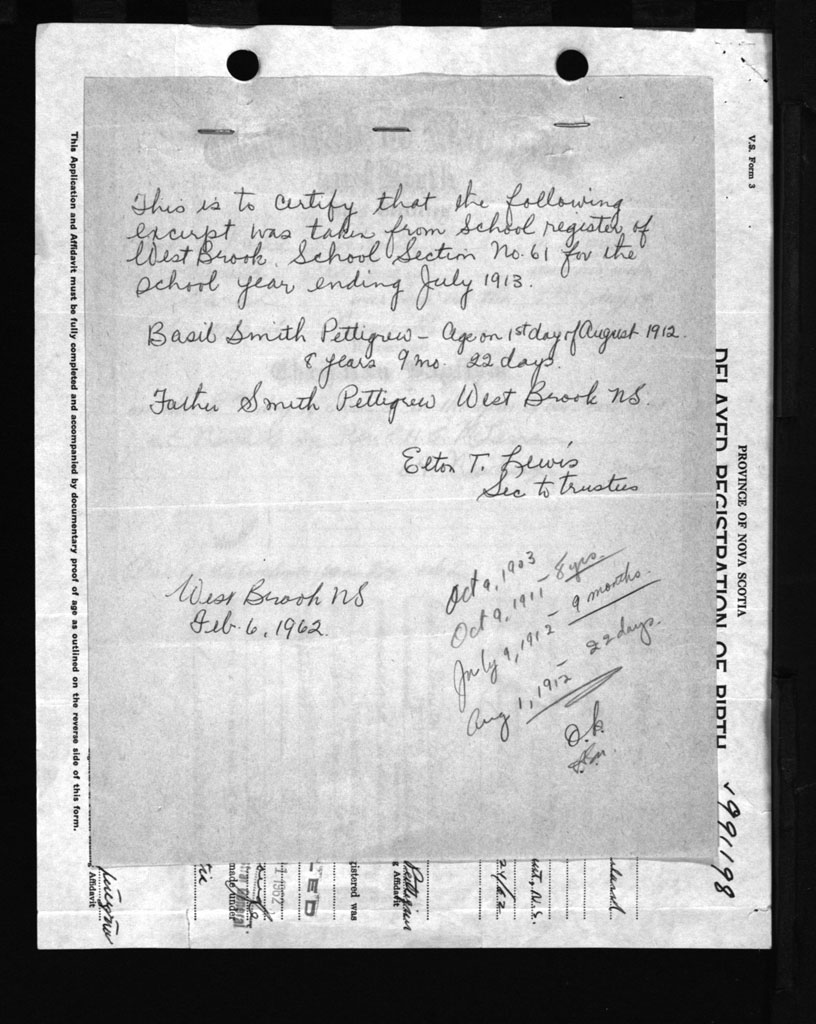 This is to certify that the following
excerpt was taken from School register of
West Brook School Section No. 61 for the
school year ending July 1913.
Basil Smith Pettigrew - Age on 1st day of August 1912.
8 years 9 mo. 22 days.
Father Smith Pettigrew West Brook NS.
Elton T. Lewis
Sec to trustees
West Brook NS
Feb. 6, 1962.
Oct 9, 1903
Oct 9, 1911 - 8 yrs.
July 9, 1912 - 9 months.
Aug 1, 1912 - 22 days.
O.K.
V.S. Form 3
PROVINCE OF NOVA SCOTIA
DELAYED REGISTRATION OF BIRTH
v 991198
This Application and Affidavit must be fully completed and accompanied by documentary proof of age as outlined on the reverse side of this form.
Affidavit
made under
1 1962
istered was
Affidavit
24/62